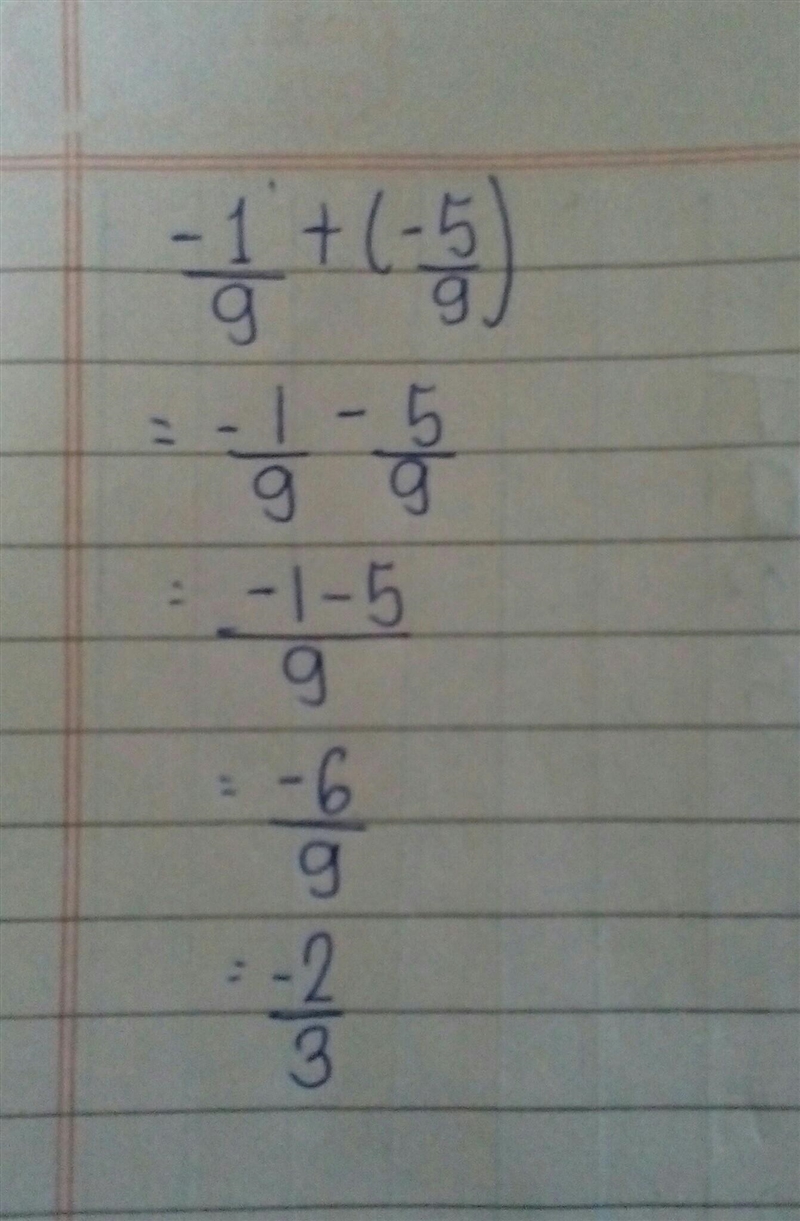 -1/9 + (-5/9)
= -1/9 - 5/9
= -1-5/9
= -6/9
= -2/3